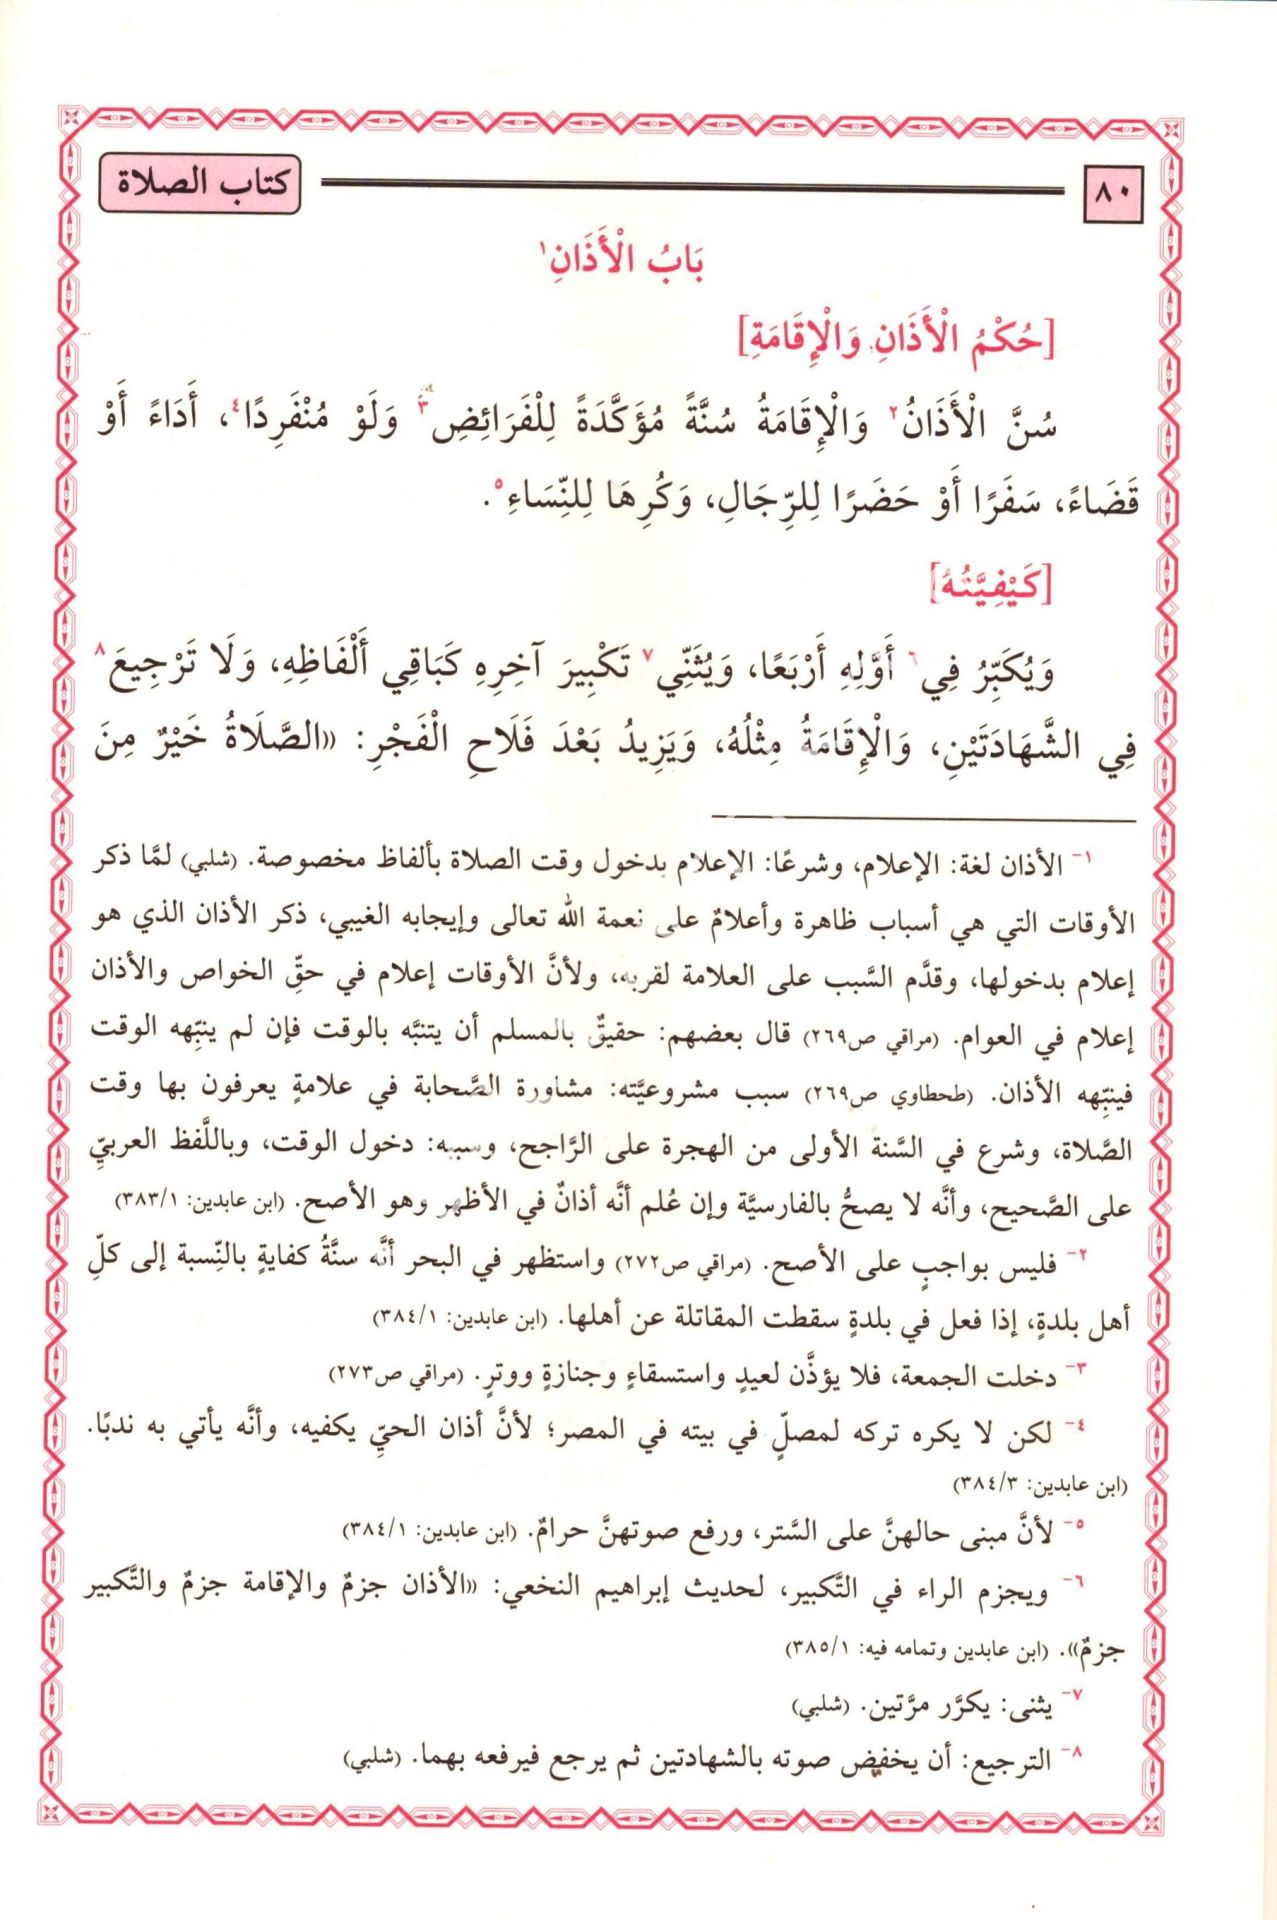 ٨٠
كتاب الصلاة
بَابُ الْأَذَانِ١
[حُكْمُ الْأَذَانِ وَالْإِقَامَةِ]
سُنَّ الْأَذَانُ٢ وَالْإِقَامَةُ سُنَّةً مُؤَكَّدَةً لِلْفَرَائِضِ٣ وَلَوْ مُنْفَرِدًا٤، أَدَاءً أَوْ
قَضَاءً، سَفَرًا أَوْ حَضَرًا لِلرِّجَالِ، وَكُرِهَا لِلنِّسَاءِ٥.
[كَيْفِيَّتُهُ]
وَيُكَبِّرُ فِي٦ أَوَّلِهِ أَرْبَعًا، وَيُثَنِّي٧ تَكْبِيرَ آخِرِهِ كَبَاقِي أَلْفَاظِهِ، وَلَا تَرْجِيعَ٨
فِي الشَّهَادَتَيْنِ، وَالْإِقَامَةُ مِثْلُهُ، وَيَزِيدُ بَعْدَ فَلَاحِ الْفَجْرِ: «الصَّلَاةُ خَيْرٌ مِنَ
١- الأذان لغة: الإعلام، وشرعًا: الإعلام بدخول وقت الصلاة بألفاظ مخصوصة. (شلبي) لمَّا ذكر
الأوقات التي هي أسباب ظاهرة وأعلامٌ على نعمة الله تعالى وإيجابه الغيبي، ذكر الأذان الذي هو
إعلام بدخولها، وقدَّم السَّبب على العلامة لقربه، ولأنَّ الأوقات إعلام في حقِّ الخواص والأذان
إعلام في العوام. (مراقي ص٢٦٩) قال بعضهم: حقيقٌ بالمسلم أن يتنبَّه بالوقت فإن لم ينبِّهه الوقت
فينبِّهه الأذان. (طحطاوي ص٢٦٩) سبب مشروعيَّته: مشاورة الصَّحابة في علامةٍ يعرفون بها وقت
الصَّلاة، وشرع في السَّنة الأولى من الهجرة على الرَّاجح، وسببه: دخول الوقت، وباللَّفظ العربيِّ
على الصَّحيح، وأنَّه لا يصحُّ بالفارسيَّة وإن عُلم أنَّه أذانٌ في الأظهر وهو الأصح. (ابن عابدين: ٣٨٣/١)
٢- فليس بواجبٍ على الأصح. (مراقي ص٢٧٢) واستظهر في البحر أنَّه سنَّةُ كفايةٍ بالنِّسبة إلى كلِّ
أهل بلدةٍ، إذا فعل في بلدةٍ سقطت المقاتلة عن أهلها. (ابن عابدين: ٣٨٤/١)
٣- دخلت الجمعة، فلا يؤذَّن لعيدٍ واستسقاءٍ وجنازةٍ ووترٍ. (مراقي ص٢٧٣)
٤- لكن لا يكره تركه لمصلٍّ في بيته في المصر؛ لأنَّ أذان الحيِّ يكفيه، وأنَّه يأتي به ندبًا.
(ابن عابدين: ٣٨٤/٣)
٥- لأنَّ مبنى حالهنَّ على السَّتر، ورفع صوتهنَّ حرامٌ. (ابن عابدين: ٣٨٤/١)
٦- ويجزم الراء في التَّكبير، لحديث إبراهيم النخعي: «الأذان جزمٌ والإقامة جزمٌ والتَّكبير
جزمٌ». (ابن عابدين وتمامه فيه: ٣٨٥/١)
٧- يثنى: يكرَّر مرَّتين. (شلبي)
٨- الترجيع: أن يخفض صوته بالشهادتين ثم يرجع فيرفعه بهما. (شلبي)